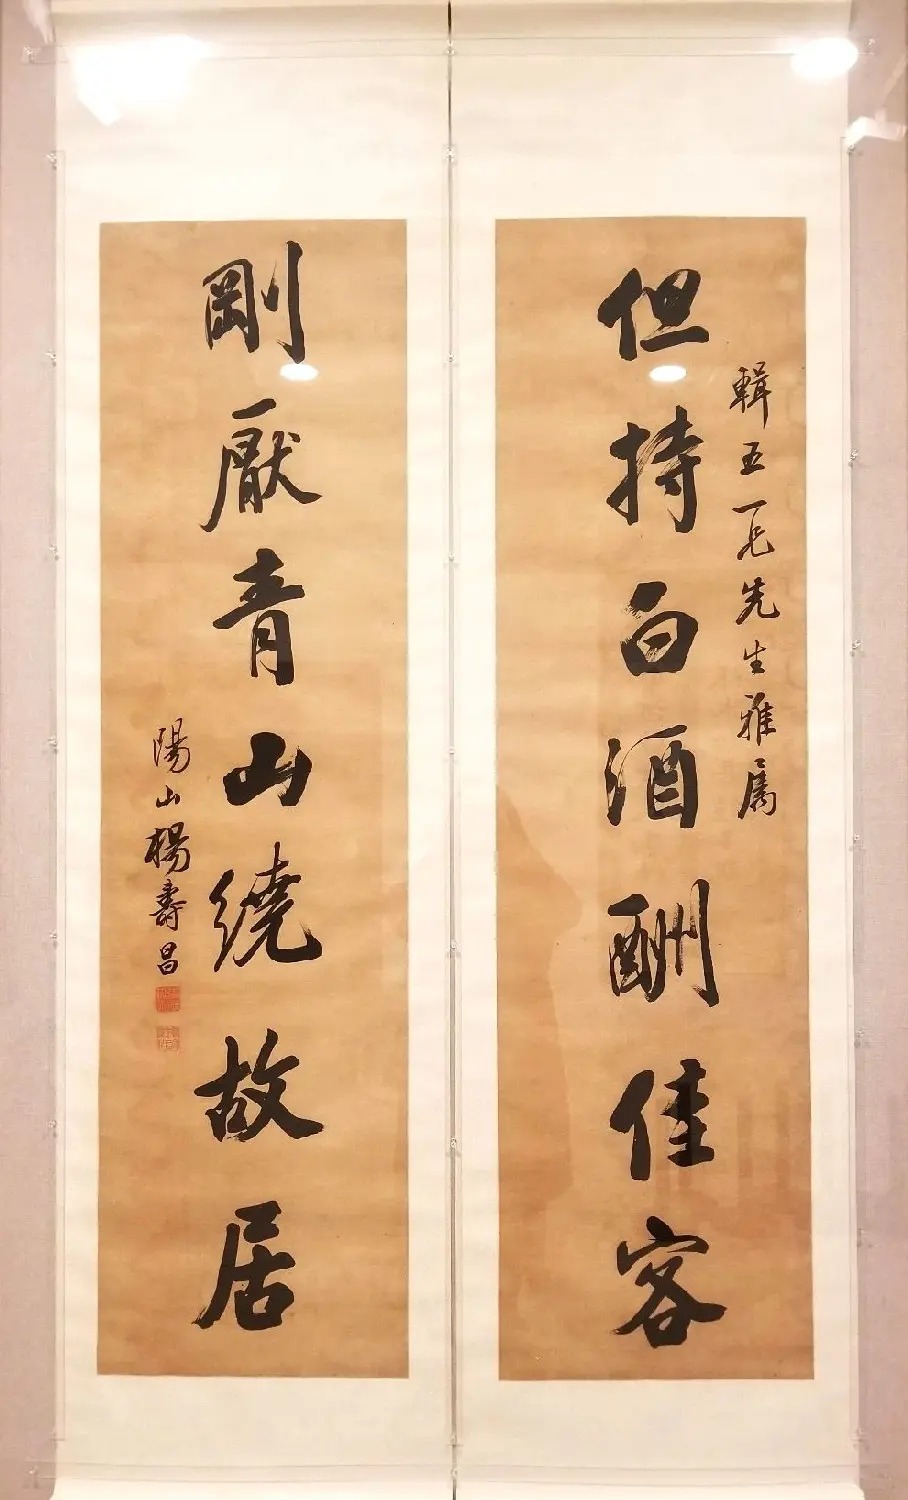 輯五一兄先生雅属
但持白酒酬佳客
剛厭青山繞故居
陽山楊壽昌